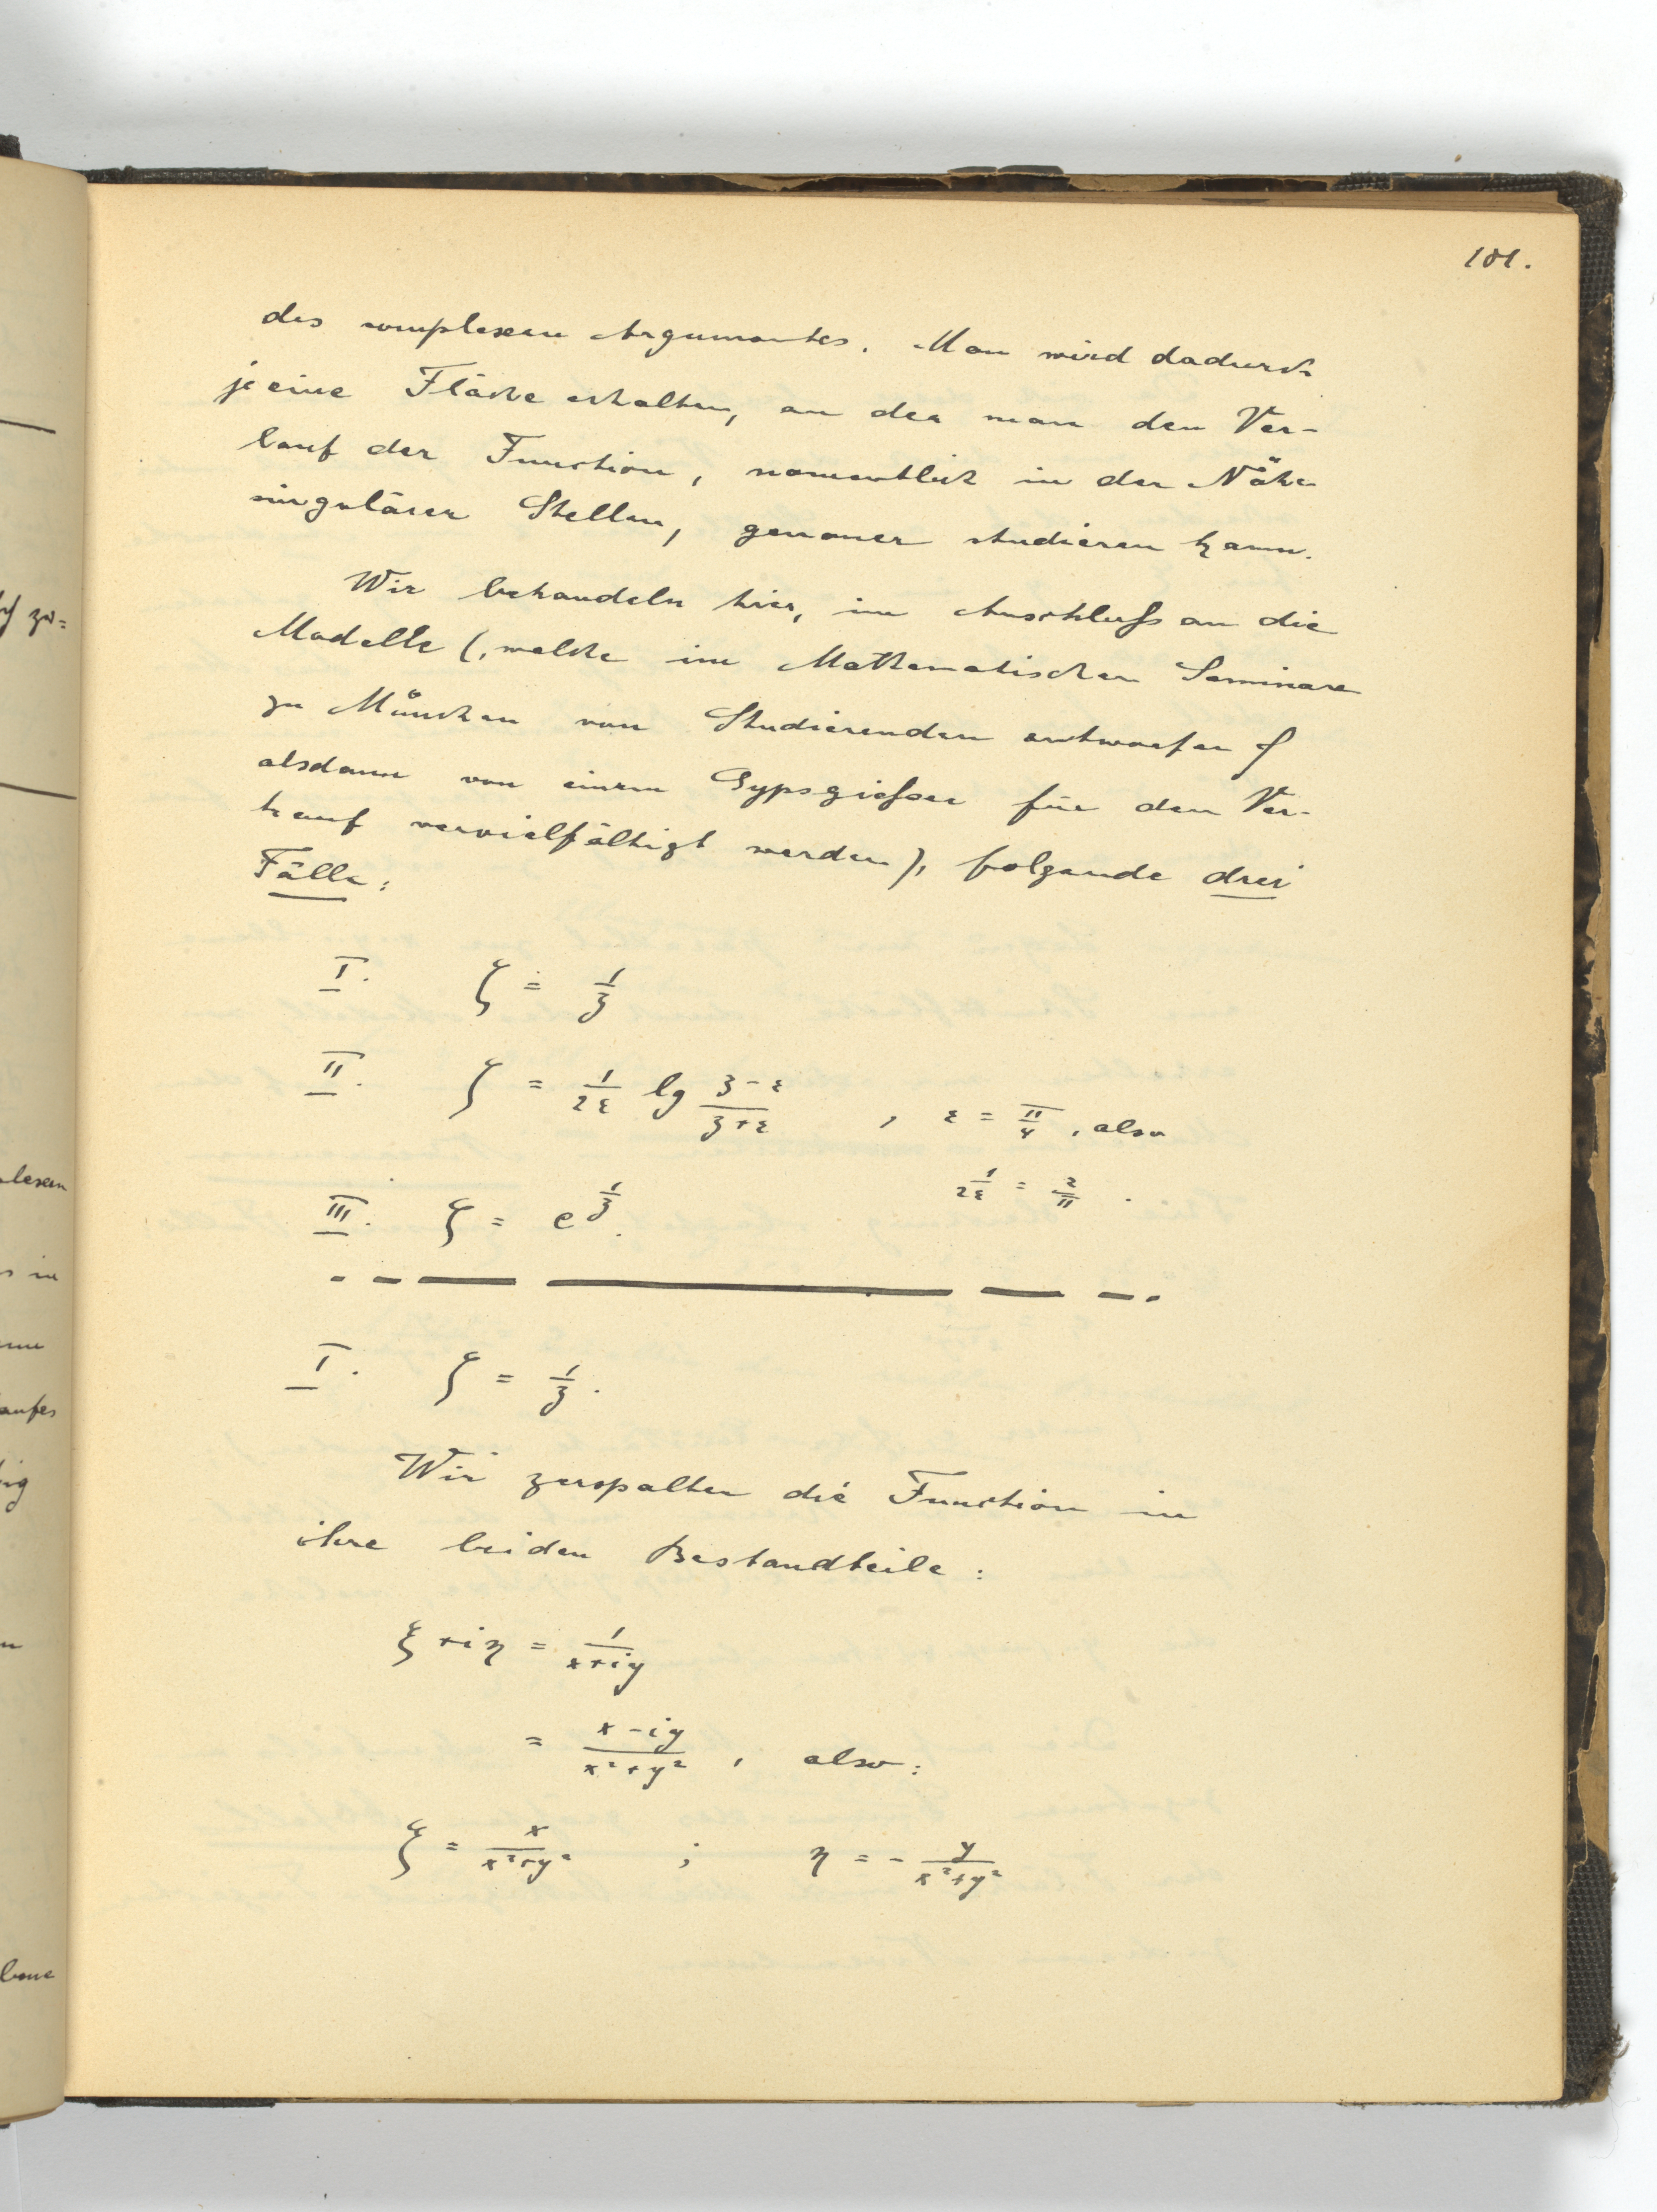 181.
des complexen Argumentes. Man wird dadurch
je eine Fläche erhalten, an der man den Ver-
lauf der Function, namentlich in der Nähe
singulärer Stellen, genauer studieren kann.
Wir behandeln hier, im Anschluß an die
Modelle (, welche im Mathematischen Seminare
zu München von Studierenden entworfen &
alsdann von einem Gypsgießer für den Ver-
kauf vervielfältigt werden), folgende drei
Fälle:
I. ζ = 1/z
II. ζ = 1/2ε lg z-ε/z+ε , ε = π/4, also
1/2ε = 2/π .
III. ζ = e^1/z.
I. ζ = 1/z.
Wir zerspalten die Function in
ihre beiden Bestandteile:
ξ + iη = 1/x+iy
= x-iy/x²+y² , also:
ξ = x/x²+y² ; η = - y/x²+y²